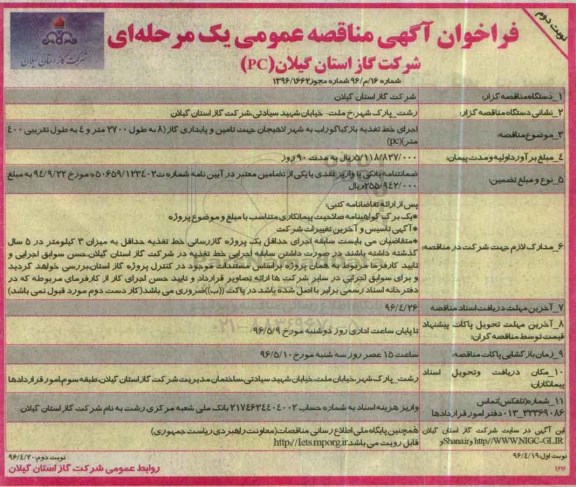 نوبت دوم
فراخوان آگهی مناقصه عمومی یک مرحله‌ای
شرکت گاز استان گیلان (PC)
شماره ۱۶/م/۹۶ شماره مجوز ۱۳۹۶/۱۶۶۲
شرکت گاز استان گیلان
۱_دستگاه مناقصه گزار: شرکت گاز استان گیلان
۲_نشانی دستگاه مناقصه گزار: رشت_پارک شهرخ ملت- خیابان شهید سیادتی،شرکت گاز استان گیلان
۳_موضوع مناقصه: اجرای خط تغذیه بازکیاگوراب به شهر لاهیجان جهت تامین و پایداری گاز (۸ به طول ۲۷۰۰ متر و ۴ به طول تقریبی ۴۰۰ متر)(pc)
۴_مبلغ برآورد اولیه و مدت پیمان: ۵/۱۱۸/۸۳۷/۰۰۰ریال به مدت ۹۰ روز
۵_نوع و مبلغ تضمین: ضمانتنامه بانکی یا واریز نقدی یا یکی از تضامین معتبر در آیین نامه شماره ت۱۲۳۴۰۲/۵۰۶۵۹ه مورخ ۹۴/۹/۲۲ به مبلغ ۲۵۵/۹۴۲/۰۰۰ریال
۶_مدارک لازم جهت شرکت در مناقصه: پس از ارائه تقاضانامه کتبی:
•یک برگ گواهینامه صلاحیت پیمانکاری متناسب با مبلغ و موضوع پروژه
•آگهی تاسیس و آخرین تغییرات شرکت
•متقاضیان می بایست سابقه اجرای حداقل یک پروژه گازرسانی خط تغذیه حداقل به میزان ۳ کیلومتر در ۵ سال گذشته داشته باشند.در صورت داشتن سابقه اجرایی خط تغذیه در شرکت گاز استان گیلان،حسن سوابق اجرایی و تایید کارفرما مربوط به همان پروژه براساس مستندات موجود در کنترل پروژه گاز استان،بررسی خواهد گردید و برای سوابق اجرائی در سایر شرکت ها ارائه تصاویر قرارداد و تایید حسن اجرای کار از کارفرمای مربوطه که در دفترخانه اسناد رسمی برابر با اصل شده باشد در پاکت ((ب))ضروری می باشد(کار دست دوم مورد قبول نمی باشد)
۷_آخرین مهلت دریافت اسناد مناقصه ۹۶/۴/۲۶
۸_آخرین مهلت تحویل پاکات پیشنهاد قیمت توسط مناقصه گران: تا پایان ساعت اداری روز دوشنبه مورخ ۹۶/۵/۹
۹_زمان بازگشایی پاکات مناقصه: ساعت ۱۵ عصر روز سه شنبه مورخ ۹۶/۵/۱۰
۱۰_مکان دریافت وتحویل اسناد پیمانکاران: رشت_پارک شهر،خیابان ملت،خیابان شهید سیادتی،ساختمان مدیریت شرکت گاز استان گیلان،طبقه سوم،امور قراردادها
۱۱_شماره(تلفکس)تماس ۳۳۳۶۹۰۸۶_۰۱۳ دفتر امور قراردادها واریز هزینه اسناد به شماره حساب ۲۱۷۴۶۲۴۴۰۴۰۰۲ بانک ملی شعبه مرکزی رشت به نام شرکت گاز استان گیلان
این آگهی در سایت شرکت گاز استان گیلان http://WWW.NIGC-GL.IR و Shana.ir و
همچنین پایگاه ملی اطلاع رسانی مناقصات(معاونت راهبردی ریاست جمهوری) قابل رویت می باشد http://iets.mporg.ir
نوبت اول:۹۶/۴/۱۹
نوبت دوم:۹۶/۴/۲۰
روابط عمومی شرکت گاز استان گیلان